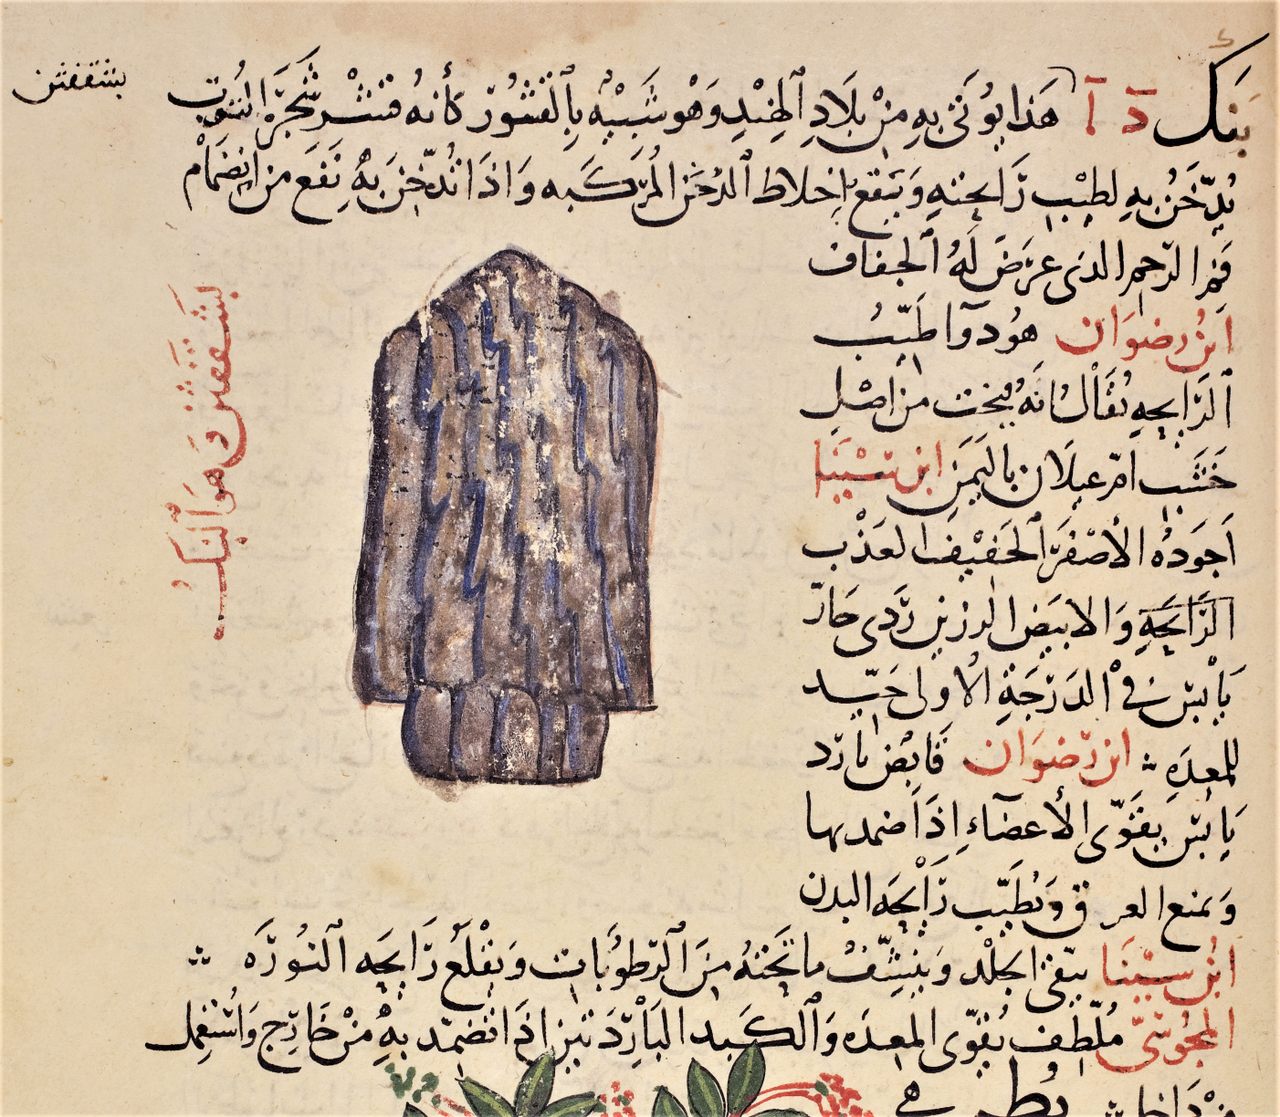 بنك د آ هذا يؤتى به من بلاد الهند وهو شبيه بالقشور كأنه قشر شجرة التوت
يدخن به لطيب رائحته وينفع باخلاط الدخن المركبه واذا تدخن به نفع من انضمام
فم الرحم الذى عرض له الجفاف
ابن رضوان هو دوآ طيب
الرايحه يقال انه ينحت من اصل
خشب ام غيلان باليمن ابن سينا
اجوده الأصفر الخفيف العذب
الرايحه والابيض الرزين ردى حار
يابس فى الدرجة الاولى جيد
للمعده ابن رضوان قابض بارد
يابس يقوى الأعضاء اذا ضمد بها
ويمنع العرق ويطيب رايحه البدن
ابن سينا ينقى الجلد وينشف ما تحته من الرطوبات ويقلع رايحه النوره
المجوسى ملطف يقوى المعده والكبد الباردتين اذا تضمد به من خارج واستعمل
من داخل
بشقفش
بشقفش وهو البنك